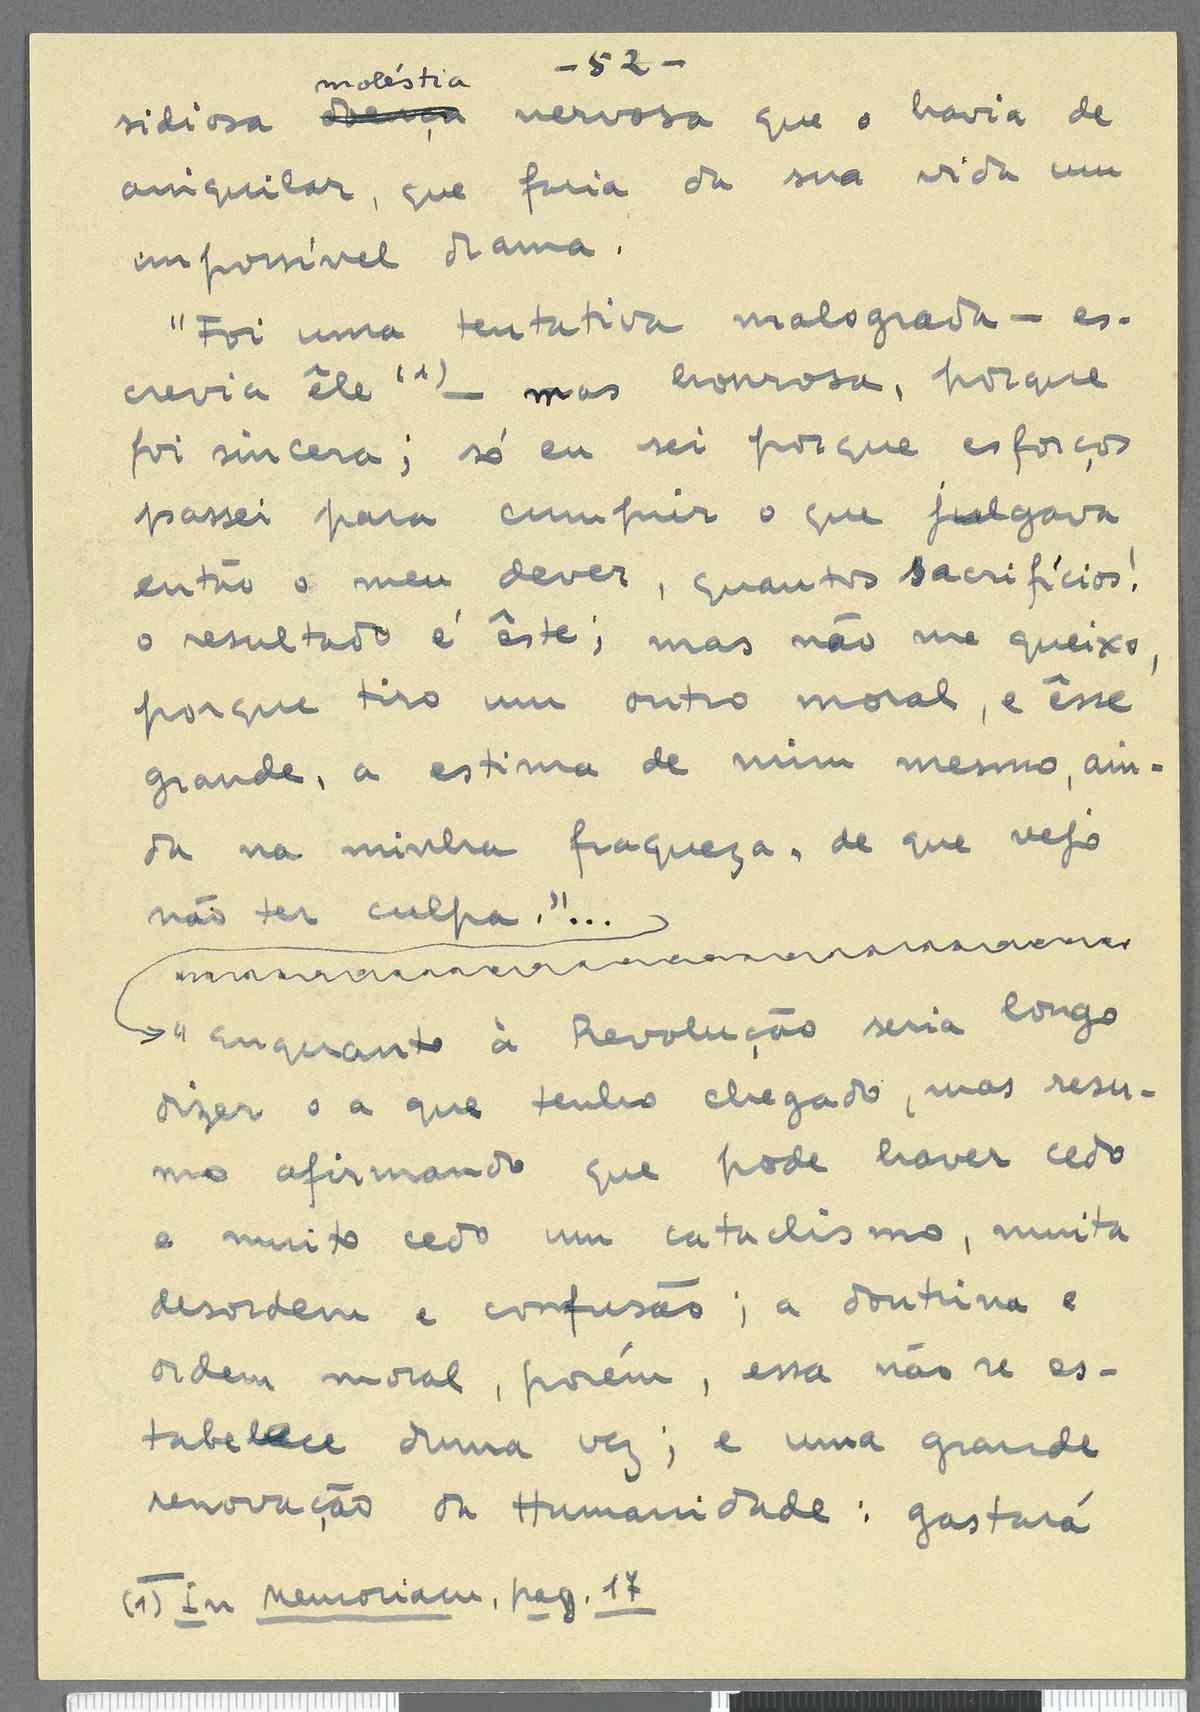 -52-
moléstia
sidiosa doença nervosa que o havia de
aniquilar, que faria da sua vida um
impossível drama.
"Foi uma tentativa malograda — es-
crevia êle (1) — mas honrosa, porque
foi sincera; só eu sei porque esforços
passei para cumprir o que julgava
então o meu dever, quantos sacrifícios!
o resultado é êste; mas não me queixo,
porque tiro um outro moral, e êsse
grande, a estima de mim mesmo, ain-
da na minha fraqueza, de que vejo
não ter culpa."...
"Enquanto à Revolução seria longo
dizer o a que tenho chegado, mas resu-
mo afirmando que pode haver cedo
e muito cedo um cataclismo, muita
desordem e confusão; a doutrina e
ordem moral, porém, essa não se es-
tabelece duma vez; e uma grande
renovação da Humanidade: gastará
(1) In Memoriam, pag. 17